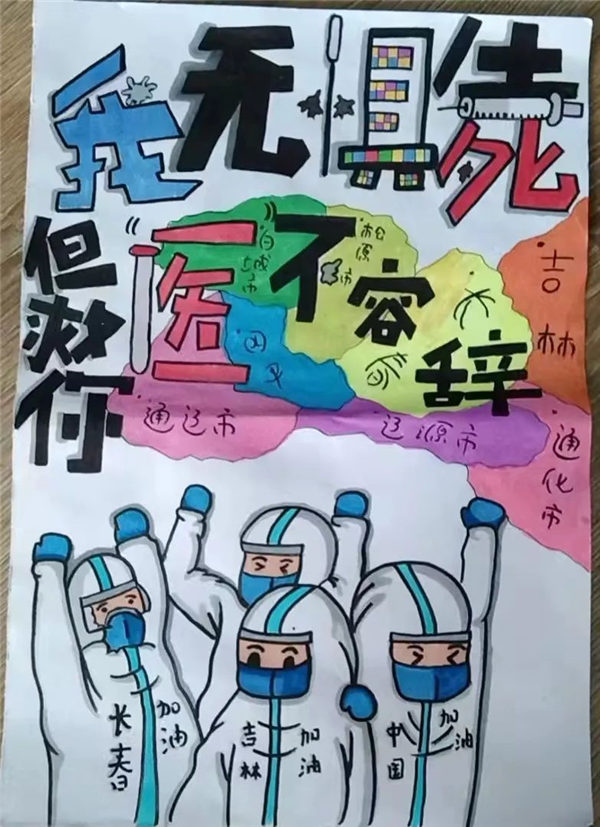 我无惧
但救你
医不容辞
白城市
松原市
吉林
通辽市
辽源市
通化市
长春 加油
吉林 加油
中国 加油